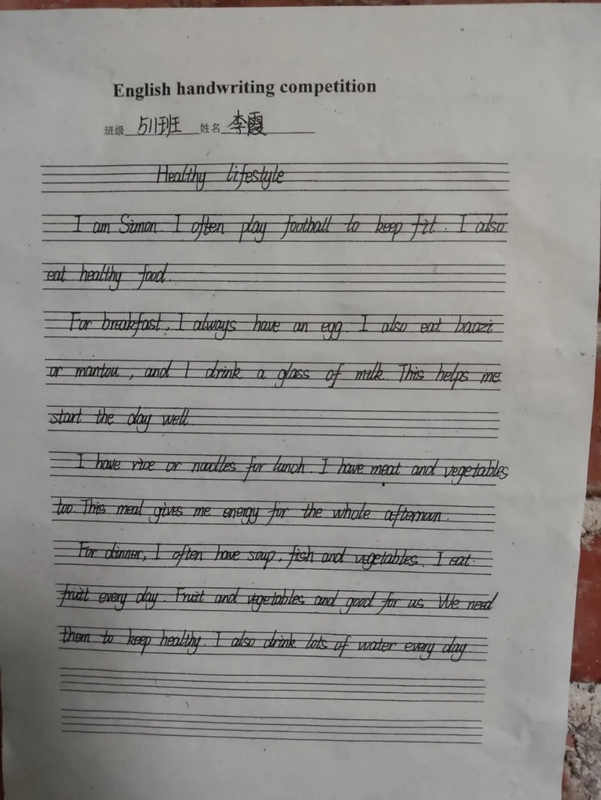 English handwriting competition
班级 511班 姓名 李霞
Healthy lifestyle
I am Simon. I often play football to keep fit. I also
eat healthy food.
For breakfast, I always have an egg. I also eat baozi
or mantou, and I drink a glass of milk. This helps me
start the day well.
I have rice or noodles for lunch. I have meat and vegetables
too. This meal gives me energy for the whole afternoon.
For dinner, I often have soup, fish and vegetables. I eat
fruit every day. Fruit and vegetables and good for us. We need
them to keep healthy. I also drink lots of water every day